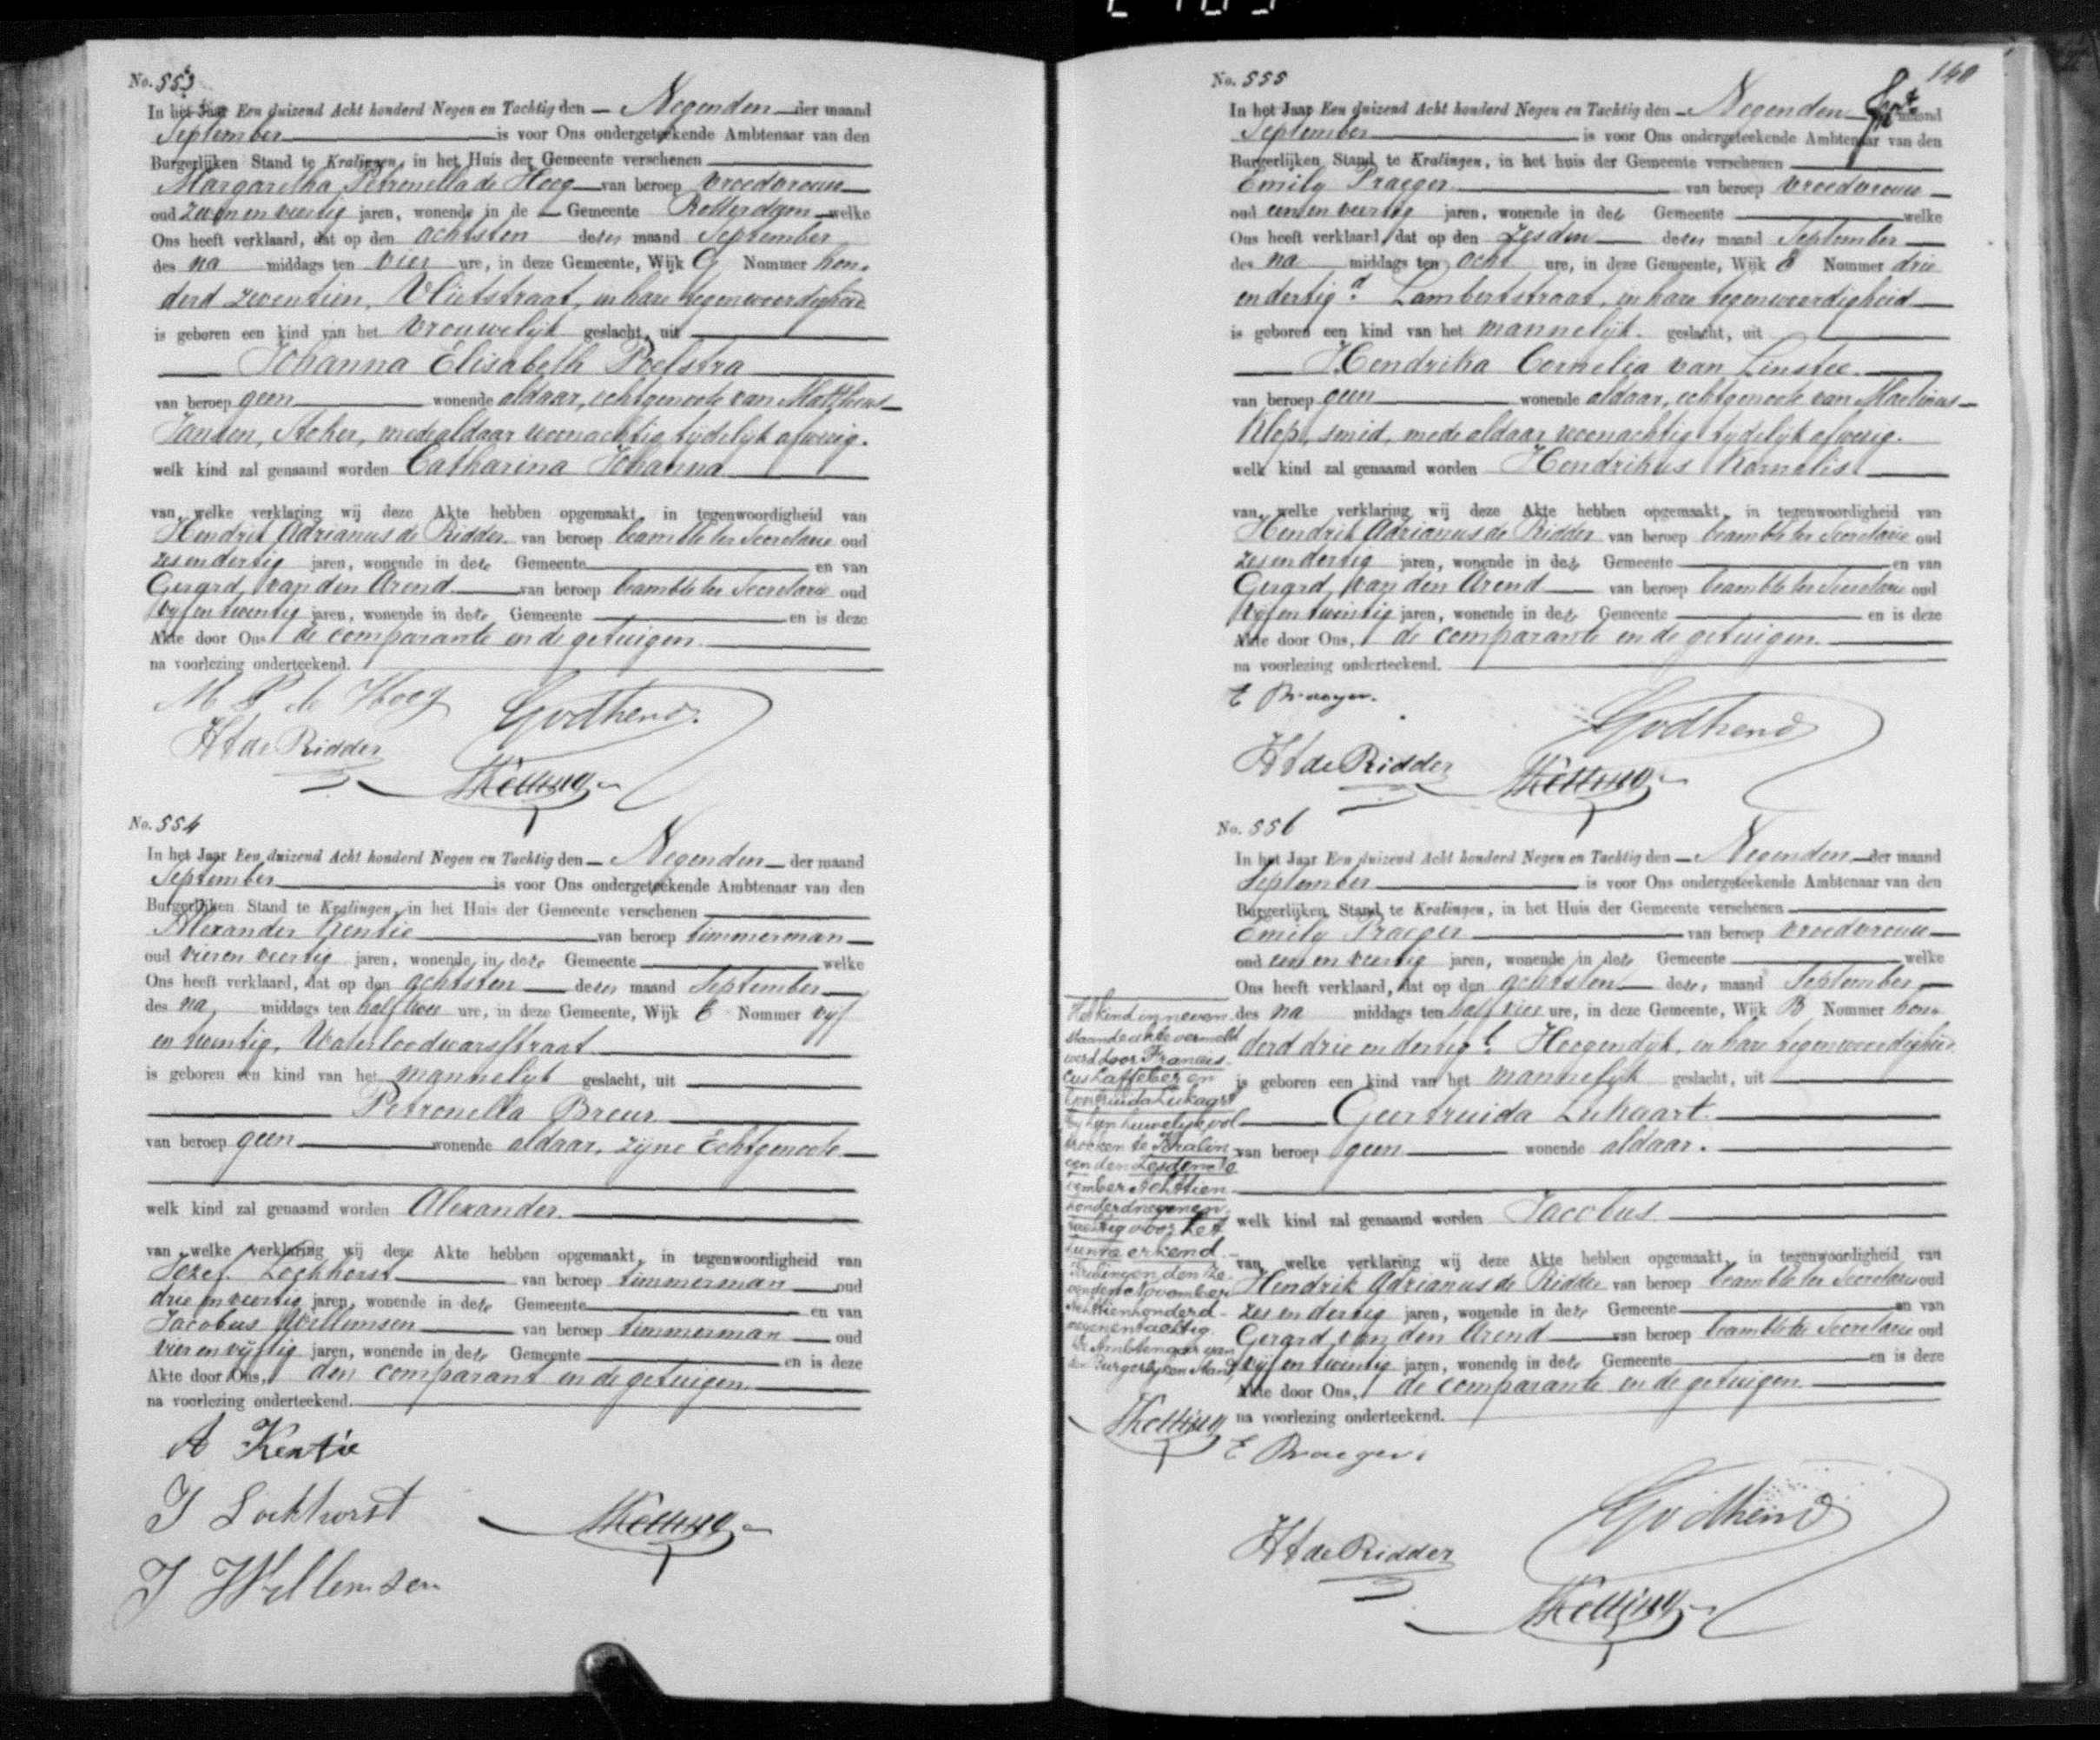 No. 553
In het Jaar Een duizend Acht honderd Negen en Tachtig den Negenden der maand
September is voor Ons ondergeteekende Ambtenaar van den
Burgerlijken Stand te Kralingen, in het Huis der Gemeente verschenen
Margaretha Petronella de Hoog van beroep vroedvrouw
oud zeven en veertig jaren, wonende in de Gemeente Rotterdam welke
Ons heeft verklaard, dat op den achtsten dezer maand September
des na middags ten vier ure, in deze Gemeente, Wijk G Nommer hon-
derd zeventien, Vlietstraat, in hare tegenwoordigheid
is geboren een kind van het vrouwelijk geslacht, uit
Johanna Elisabeth Poelstra
van beroep geen wonende aldaar, echtgenoote van Mattheus
Jansen, stoker, mede aldaar woonachtig tijdelijk afwezig.
welk kind zal genaamd worden Catharina Johanna
van welke verklaring wij deze Akte hebben opgemaakt, in tegenwoordigheid van
Hendrik Adrianus de Ridder van beroep beambte ter Secretarie oud
zes en dertig jaren, wonende in deze Gemeente en van
Gerard van den Arend van beroep beambte ter Secretarie oud
vijf en twintig jaren, wonende in deze Gemeente en is deze
Akte door Ons, de comparante en de getuigen
na voorlezing onderteekend.
M P de Hoog
HA de Ridder
No. 554
In het Jaar Een duizend Acht honderd Negen en Tachtig den Negenden der maand
September is voor Ons ondergeteekende Ambtenaar van den
Burgerlijken Stand te Kralingen, in het Huis der Gemeente verschenen
Alexander Kentie van beroep timmerman
oud vier en veertig jaren, wonende in deze Gemeente welke
Ons heeft verklaard, dat op den achtsten dezer maand September
des na middags ten half twee ure, in deze Gemeente, Wijk E Nommer vijf
en twintig, Waterloodwarsstraat
is geboren een kind van het mannelijk geslacht, uit
Petronella Breur
van beroep geen wonende aldaar, zijne Echtgenoote
welk kind zal genaamd worden Alexander.
van welke verklaring wij deze Akte hebben opgemaakt, in tegenwoordigheid van
Jozef Lockhorst van beroep timmerman oud
drie en veertig jaren, wonende in deze Gemeente en van
Jacobus Willemsen van beroep timmerman oud
vier en vijftig jaren, wonende in deze Gemeente en is deze
Akte door Ons, den comparant en de getuigen
na voorlezing onderteekend.
A Kentie
J Lockhorst
J Willemsen
140
No. 555
In het Jaar Een duizend Acht honderd Negen en Tachtig den Negenden der maand
September is voor Ons ondergeteekende Ambtenaar van den
Burgerlijken Stand te Kralingen, in het huis der Gemeente verschenen
Emily Praeger van beroep vroedvrouw
oud een en veertig jaren, wonende in deze Gemeente welke
Ons heeft verklaard, dat op den zesden dezer maand September
des na middags ten acht ure, in deze Gemeente, Wijk E Nommer drie
en dertig d. Lambertstraat, in hare tegenwoordigheid
is geboren een kind van het mannelijk geslacht, uit
Hendrika Cornelia van Linstee
van beroep geen wonende aldaar, echtgenoote van Martinus
Klop, smid, mede aldaar woonachtig tijdelijk afwezig.
welk kind zal genaamd worden Hendrikus Kornelis
van welke verklaring wij deze Akte hebben opgemaakt, in tegenwoordigheid van
Hendrik Adrianus de Ridder van beroep beambte ter Secretarie oud
zes en dertig jaren, wonende in deze Gemeente en van
Gerard van den Arend van beroep beambte ter Secretarie oud
vijf en twintig jaren, wonende in deze Gemeente en is deze
Akte door Ons, de comparante en de getuigen.
na voorlezing onderteekend.
E Praeger.
HA de Ridder
No. 556
In het Jaar Een duizend Acht honderd Negen en Tachtig den Negenden der maand
September is voor Ons ondergeteekende Ambtenaar van den
Burgerlijken Stand te Kralingen, in het Huis der Gemeente verschenen
Emily Praeger van beroep vroedvrouw
oud een en veertig jaren, wonende in deze Gemeente welke
Ons heeft verklaard, dat op den achtsten dezer maand September
des na middags ten half vier ure, in deze Gemeente, Wijk B Nommer hon-
derd drie en dertig Hoogendijk, in hare tegenwoordigheid
is geboren een kind van het mannelijk geslacht, uit
Geertruida Lukaart
van beroep geen wonende aldaar.
welk kind zal genaamd worden Jacobus
van welke verklaring wij deze Akte hebben opgemaakt, in tegenwoordigheid van
Hendrik Adrianus de Ridder van beroep beambte ter Secretarie oud
zes en dertig jaren, wonende in deze Gemeente en van
Gerard van den Arend van beroep beambte ter Secretarie oud
vijf en twintig jaren, wonende in deze Gemeente en is deze
Akte door Ons, de comparante en de getuigen
na voorlezing onderteekend.
E Praeger.
HA de Ridder
Het kind in neven-
staande akte vermeld
werd door Francis-
cus Laffeber en
Geertruida Lukaart
bij hun huwelijk vol-
trokken te Kralin-
gen den
Achttien
honderd negen en
tachtig voor het
hunne erkend.
Kralingen den
November
Achttienhonderd
negenentachtig
De Ambtenaar van
den Burgerlijken Stand